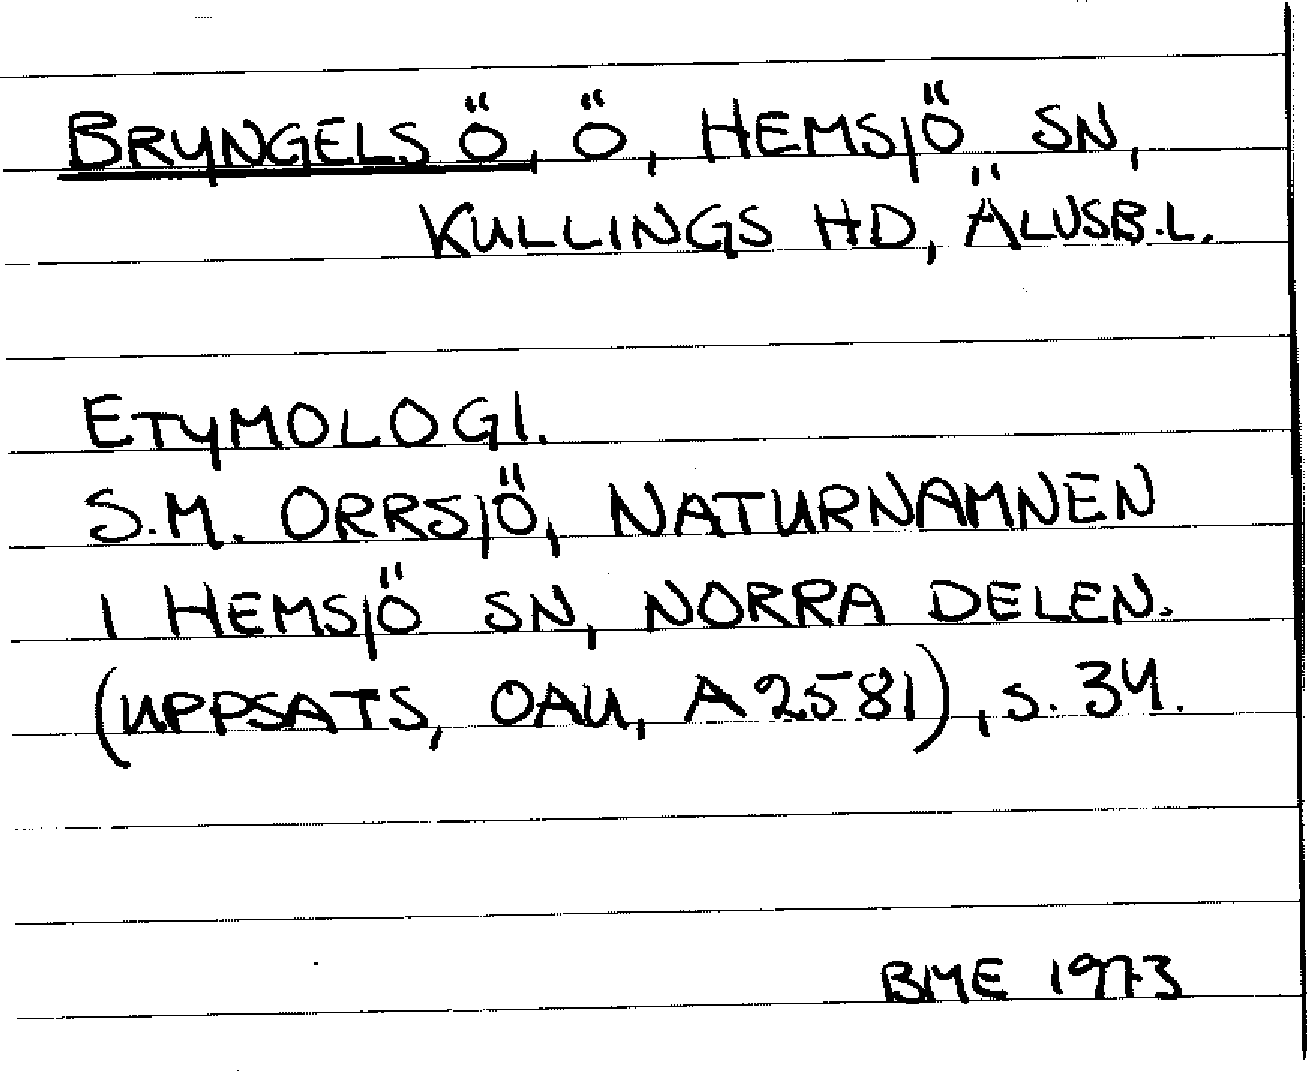 BRYNGELS Ö, Ö, HEMSJÖ SN,
KULLINGS HD, ÄLVSB.L.
ETYMOLOGI.
S.M. ORRSJÖ, NATURNAMNEN
I HEMSJÖ SN, NORRA DELEN.
(UPPSATS, OAU, A 2581), S. 34.
BME 1973